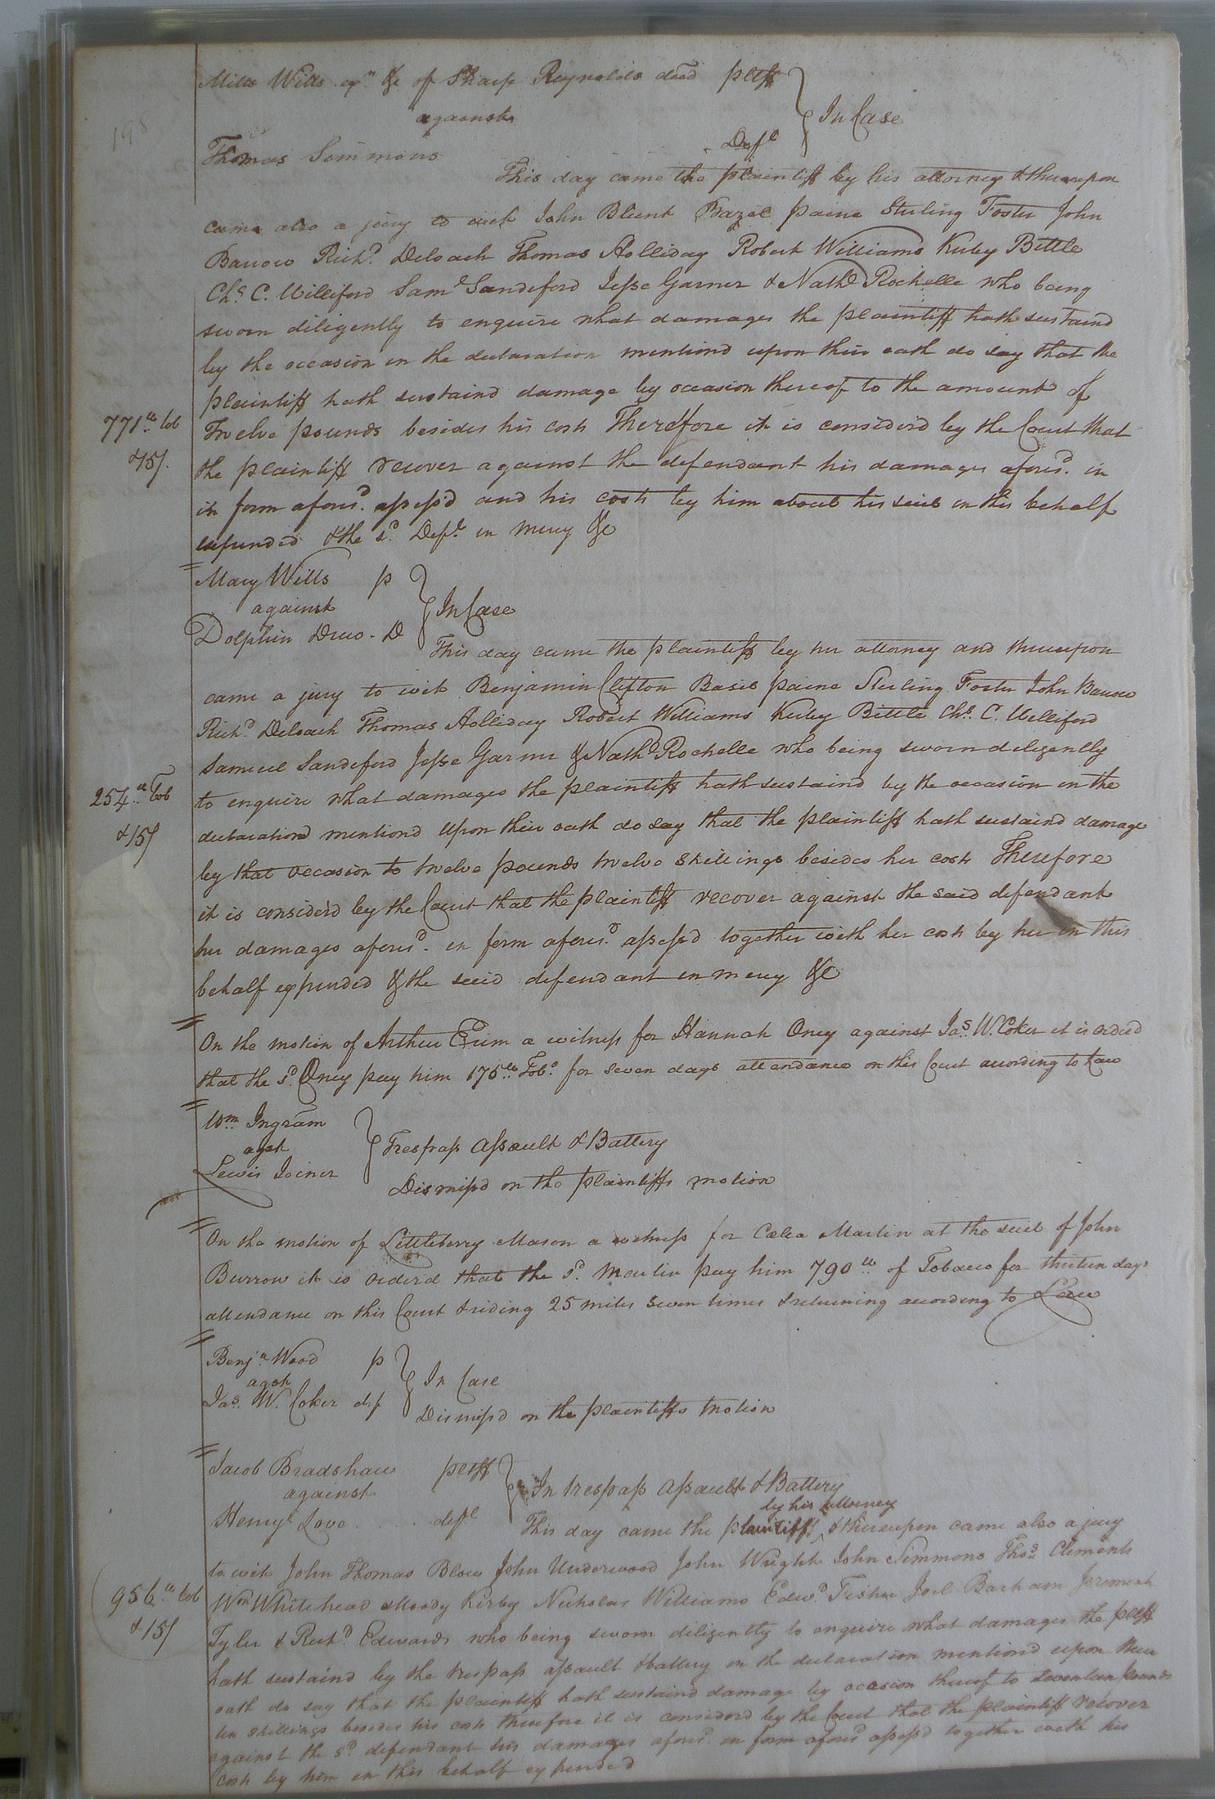 198
Mills Wills exr &c of Sharp Reynolds decd pltff
against
In Case
Thomas Simmons Deft
This day came the plaintiff by his attorney & thereupon
came also a jury to wit John Blunt Bazil paine Sterling Foster John
Barrow Richd. Deloach Thomas Holliday Robert Williams Kirby Bittle
Chs. C. Williford Saml Sandeford Jesse Garner & Nathl Rochelle who being
sworn diligently to enquire what damages the plaintiff hath sustaind
by the occasion in the declaration mentiond upon their oath do say that the
plaintiff hath sustaind damage by occasion thereof to the amount of
771 lb Tob
Twelve pounds besides his costs Therefore it is considerd by the Court that
& 15/.
the plaintiff recover against the defendant his damages aforesd. in
in form aforesd. assess'd and his costs by him about his suit in this behalf
expended & the sd. Deft. in mercy &c
Mary Wills p
against
In Case
Dolphin Drew - D
This day came the plaintiff by her attorney and thereupon
came a jury to wit Benjamin Clifton Basil paine Sterling Foster John Barrow
Richd Deloach Thomas Holliday Robert Williams Kirby Bittle Chs. C. Williford
Samuel Sandeford Jesse Garner & Nathl Rochelle who being sworn diligently
254 lb Tob
to enquire what damages the plaintiff hath sustaind by the occasion in the
& 15/
declaration mentiond upon their oath do say that the plaintiff hath sustaind damage
by that occasion to twelve pounds twelve shillings besides her costs Therefore
it is consider'd by the Court that the plaintiff recover against the said defendant
her damages aforesd. in form aforesd. assess'd together with her costs by her in this
behalf expended & the said defendant in mercy &c
On the motion of Arthur a witness for Hannah Oney against Jas. W. Coker it is orderd
that the sd. Oney pay him 175 lb Tobo. for seven days attendance on this Court according to Law
Wm. Ingram
agst
Trespass Assault & Battery
Lewis Joiner
Dismiss'd on the plaintiffs motion
On the motion of Littleberry Mason a witness for Celia Martin at the suit of John
Burrow it is orderd that the sd. Martin pay him 790 lb of Tobacco for thirteen days
attendance on this Court & riding 25 miles seven times & returning according to Law
Benja. Wood p
agst
In Case
Jas. W. Coker def
Dismiss'd on the plaintiffs motion
Jacob Bradshaw pltff
against
In trespass assault & Battery
by his attorney
Henry Love deft
This day came the plaintiff & thereupon came also a jury
to wit John Thomas Blow John Underwood John Wright John Simmons Thos. Clements
956 lb Tob
Wm Whitehead Moody Kirby Nicholas Williams Edwd. Fisher Joel Barham Jeremiah
& 15/
Tyler & Richd Edwards who being sworn diligently to enquire what damages the pltff
hath sustaind by the trespass assault & battery in the declaration mentiond upon their
oath do say that the plaintiff hath sustaind damage by occasion thereof to seventeen pounds
ten shillings besides his costs therefore it is considerd by the Court that the plaintiff recover
against the sd defendant his damages aforesd. in form aforesd assess'd together with his
costs by him in this behalf expended